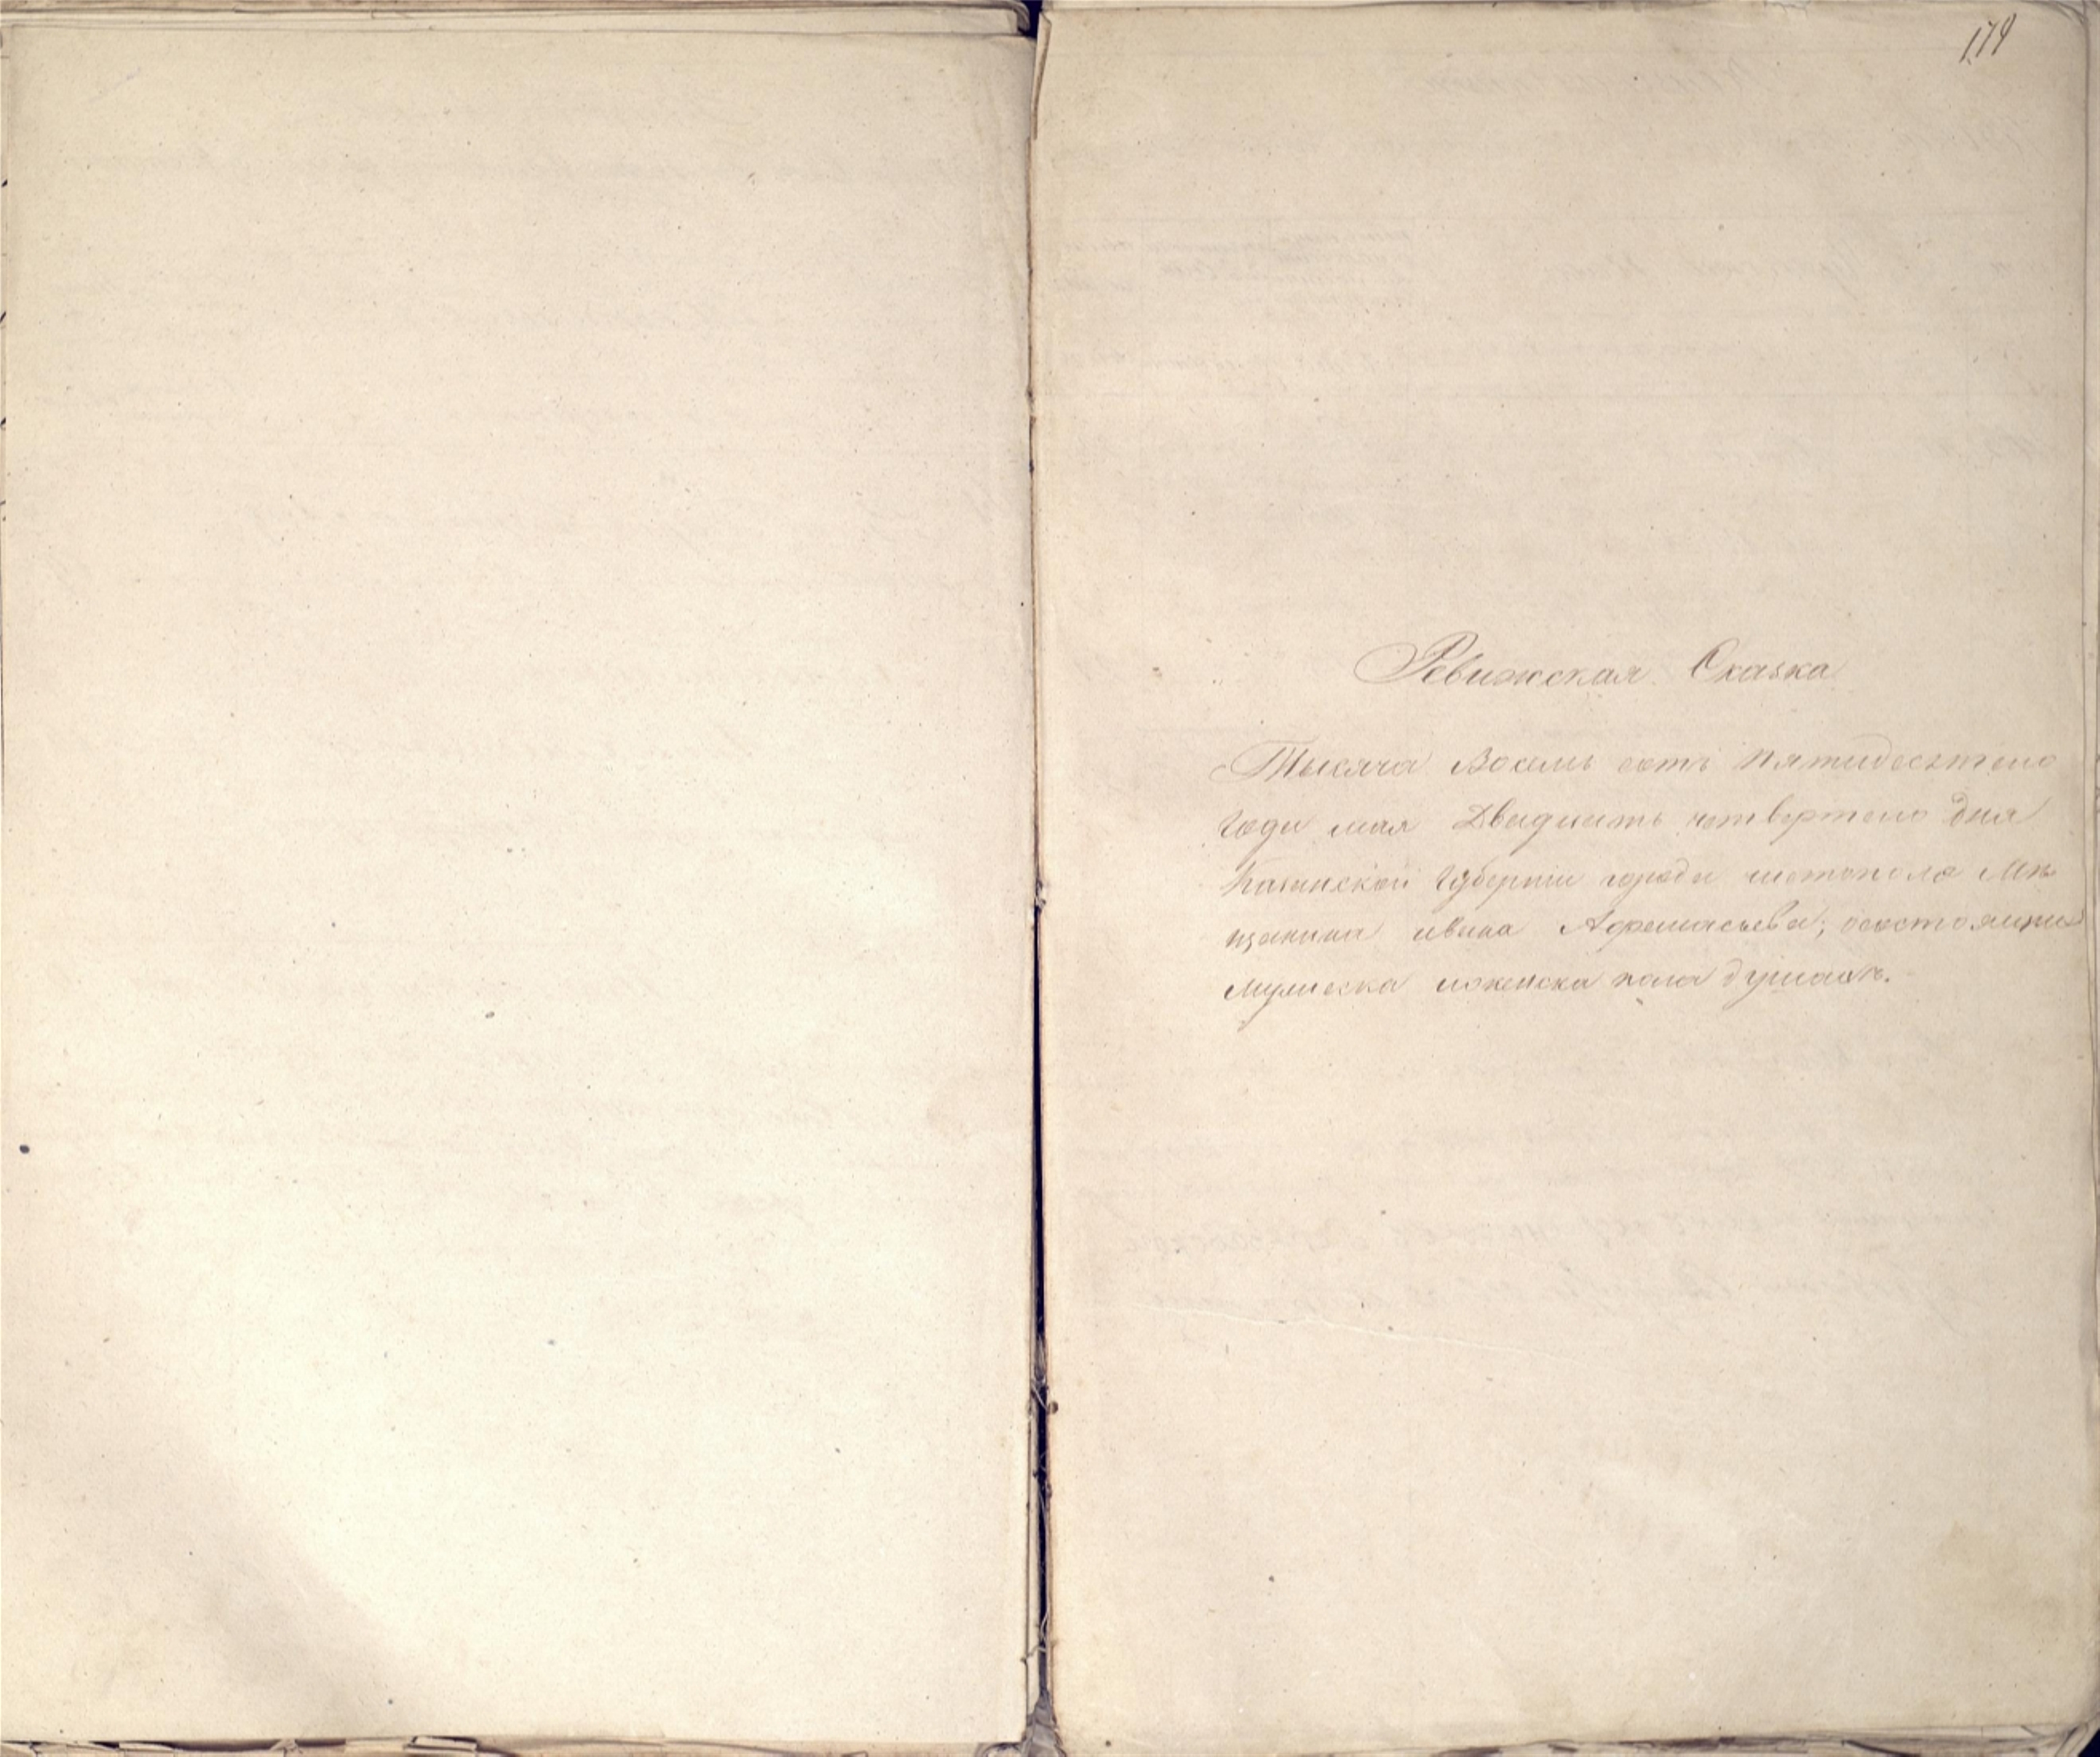 174
Ревижская Сказка
Тысяча Восемь сотъ пятидесятого
года мая Двадцать четвертого дня
Казанской Губернии города чистополя Мѣ
щанина ивана Афонасьева, осостоящих
мужеска иженска пола душахъ.